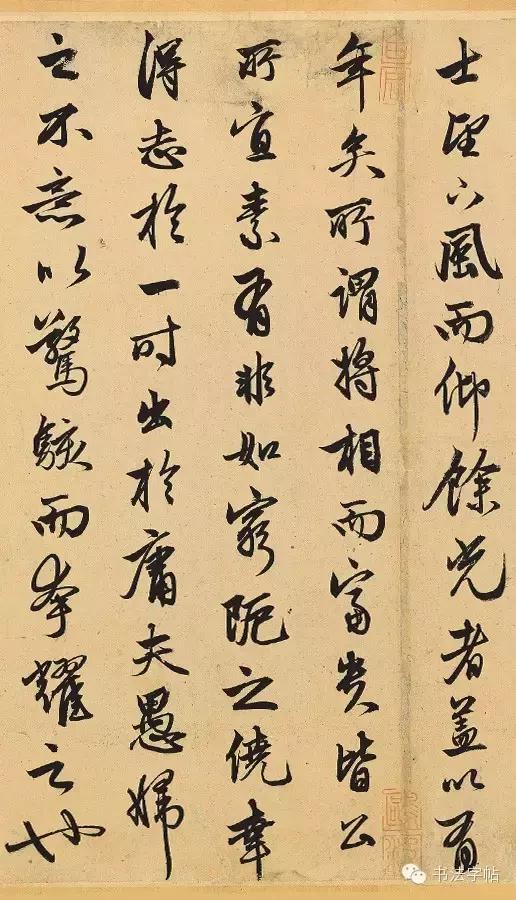 士望下風而仰餘光者蓋以有
年矣所謂將相而富貴皆公
所宜素有非如窮阨之僥幸
得志於一时出於庸夫愚婦
之不意以驚駭而夸耀之也
书法字帖